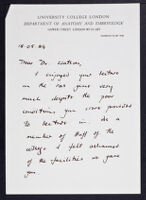 UNIVERSITY COLLEGE LONDON
DEPARTMENT OF ANATOMY AND EMBRYOLOGY
GOWER STREET LONDON WC1E 6BT
Dear Dr. Watson,
I enjoyed your lecture
on the gene very
much despite the poor
conditions you were provided
to lecture in. As a
member of staff of the
college I felt ashamed
of the facilities we gave
you.